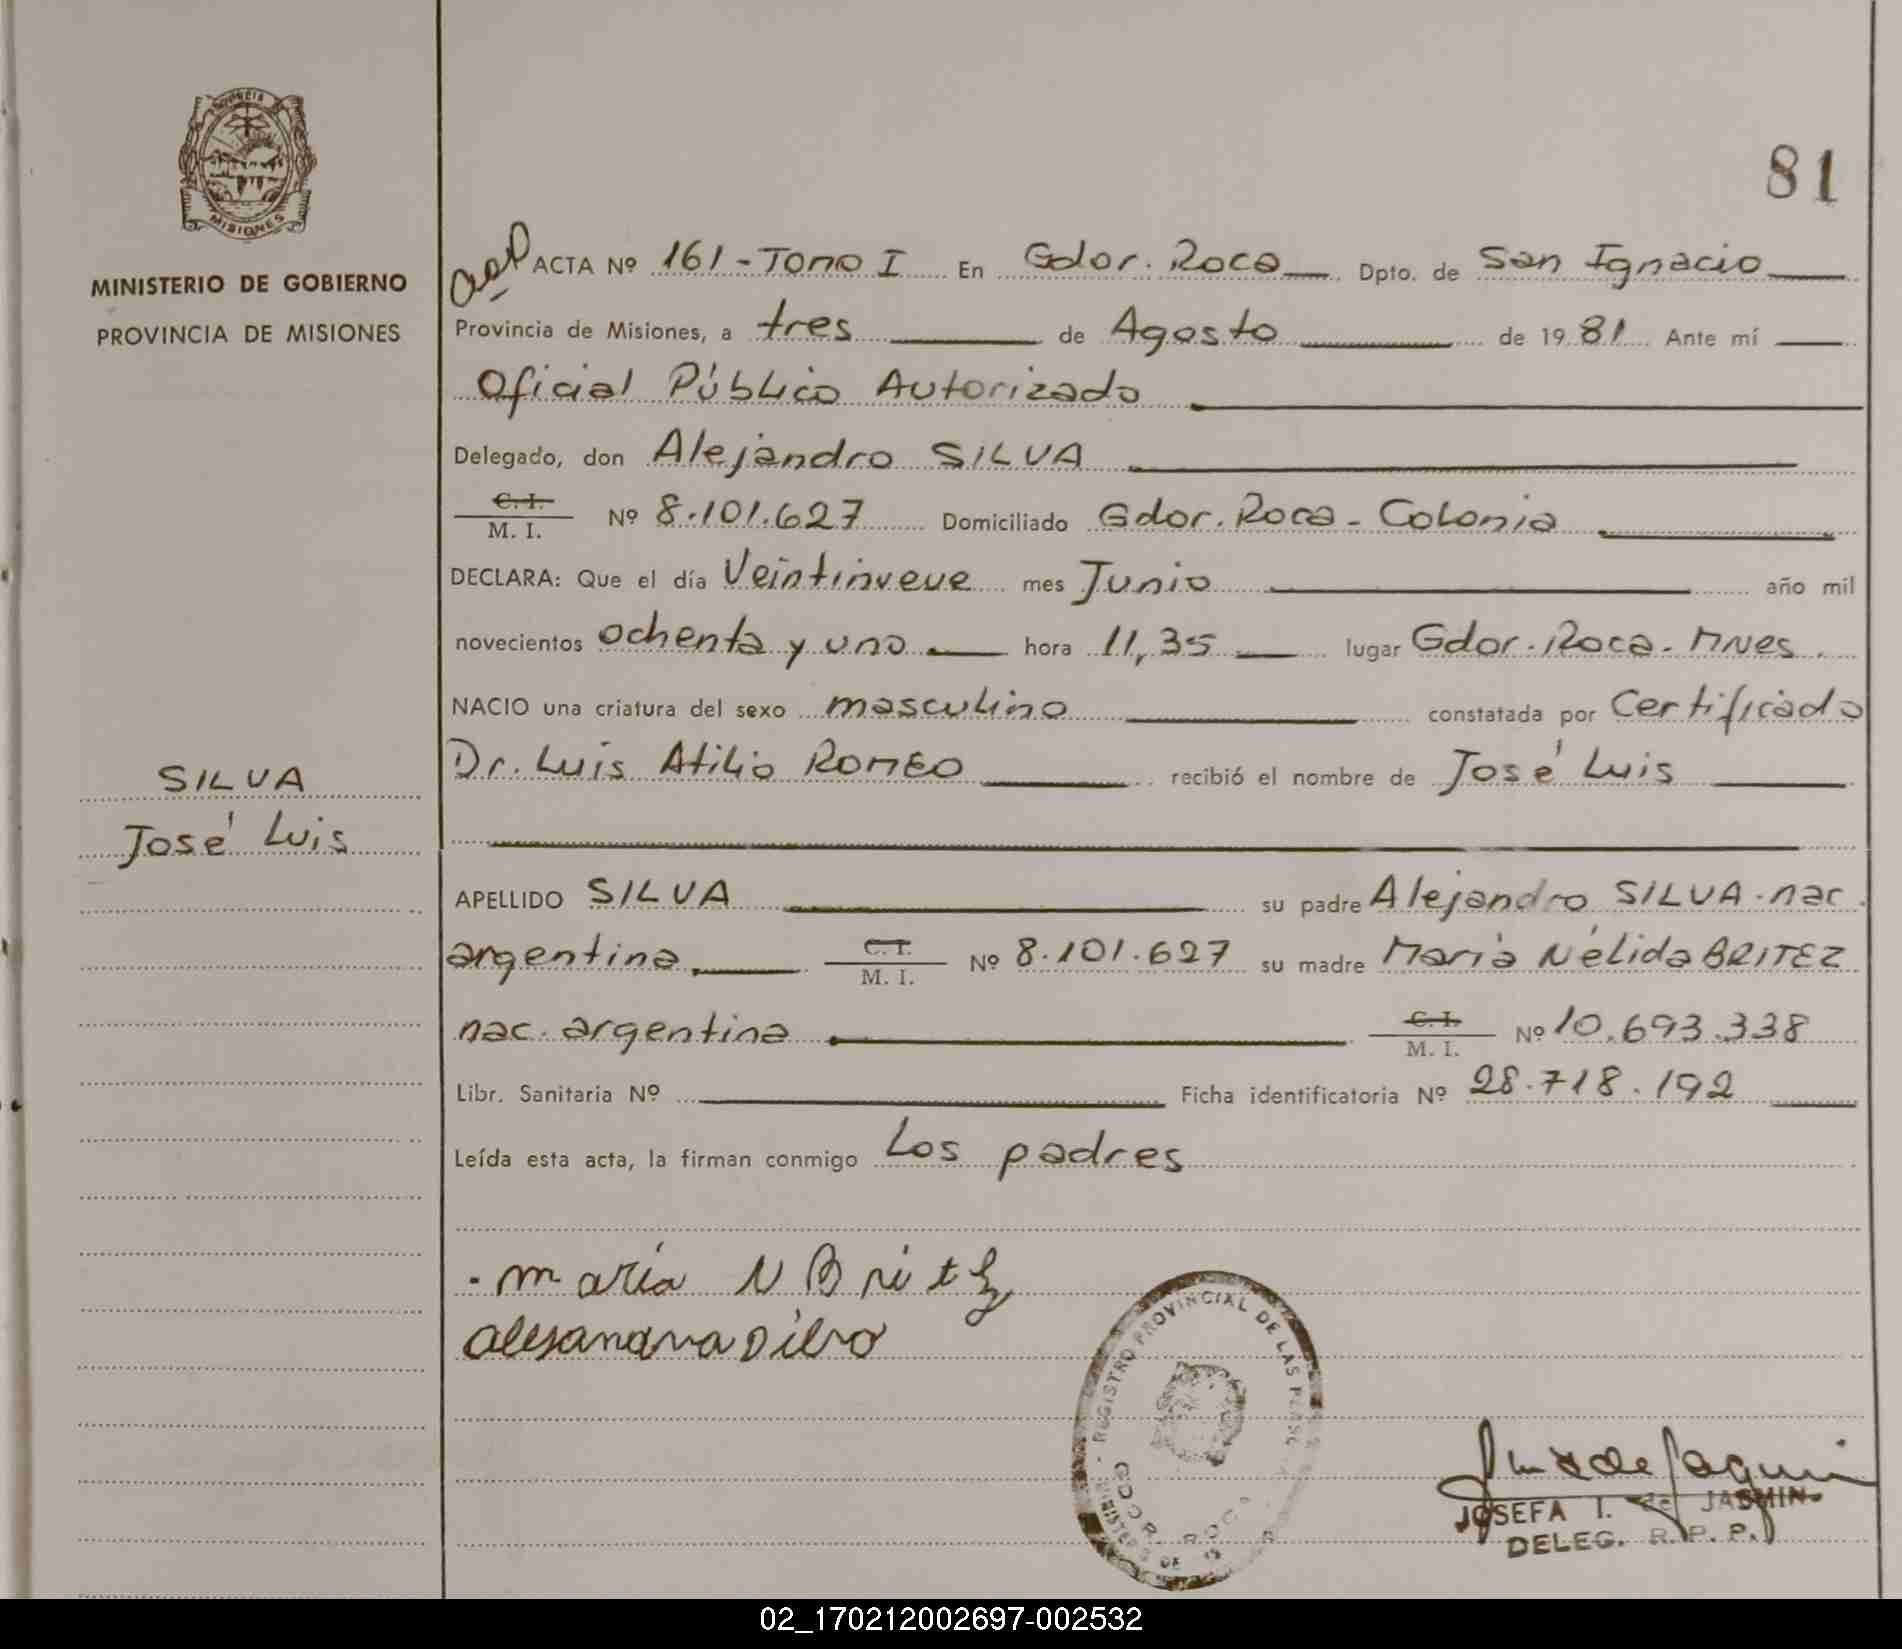 PROVINCIA DE
MISIONES
MINISTERIO DE GOBIERNO
PROVINCIA DE MISIONES
SILVA
José Luis
81
ACTA Nº 161 - Tomo I En Gdor. Roca Dpto. de San Ignacio
Provincia de Misiones, a tres de Agosto de 1981 Ante mí
Oficial Público Autorizado
Delegado, don Alejandro SILVA
C. I.
M. I. Nº 8.101.627 Domiciliado Gdor. Roca - Colonia
DECLARA: Que el día Veintinveve mes Junio año mil
novecientos ochenta y uno hora 11,35 lugar Gdor. Roca - Mnes.
NACIO una criatura del sexo masculino constatada por Certificado
Dr. Luis Atilio ROMEO recibió el nombre de José Luis
APELLIDO SILVA su padre Alejandro SILVA - nac.
argentina, C. I.
M. I. Nº 8.101.627 su madre María Nélida BRITEZ
nac. argentina C. I.
M. I. Nº 10.693.338
Libr. Sanitaria Nº Ficha identificatoria Nº 28.718.192
Leída esta acta, la firman conmigo Los padres
María N Britez
REGISTRO PROVINCIAL DE LAS PERSO
JOSEFA I. de JASMIN
DELEG. R. P. P.
02_170212002697-002532